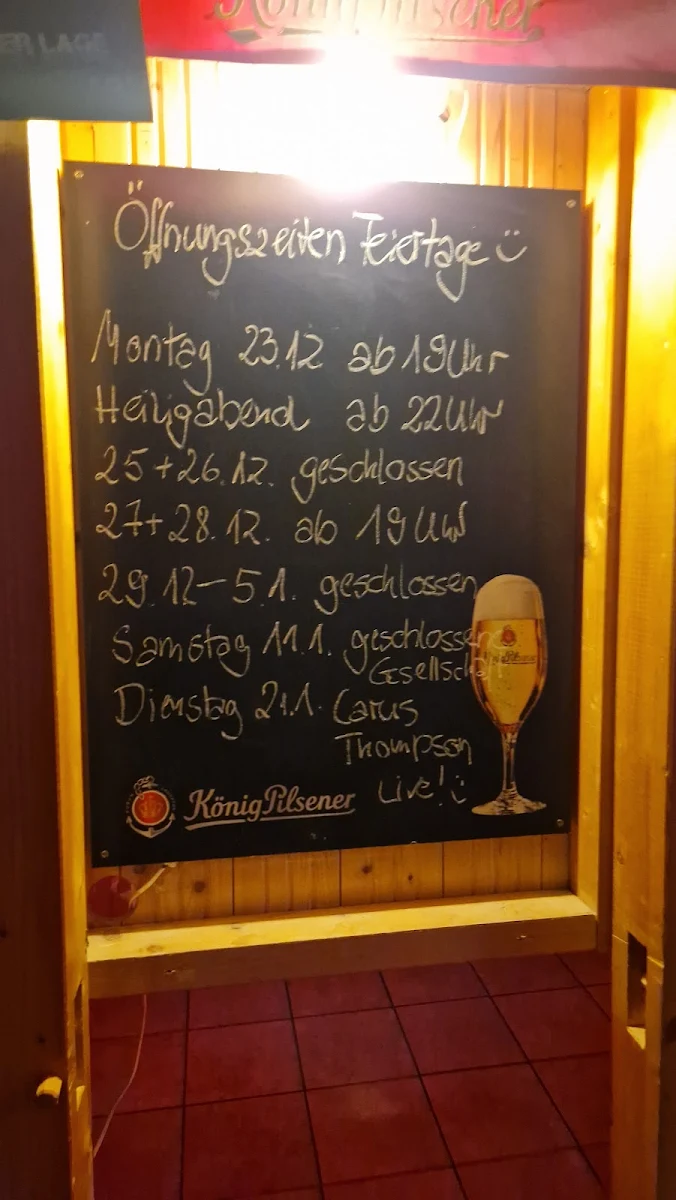 König Pilsener
ER LAGE
Öffnungszeiten Feiertage
Montag 23.12 ab 19 Uhr
Heiligabend ab 22 Uhr
25 + 26.12. geschlossen
27 + 28.12. ab 19 Uhr
29.12 – 5.1. geschlossen
Samstag 11.1. geschlossene
Gesellschaft
Dienstag 21.1. Carus
Thompson
Live!
König Pilsener